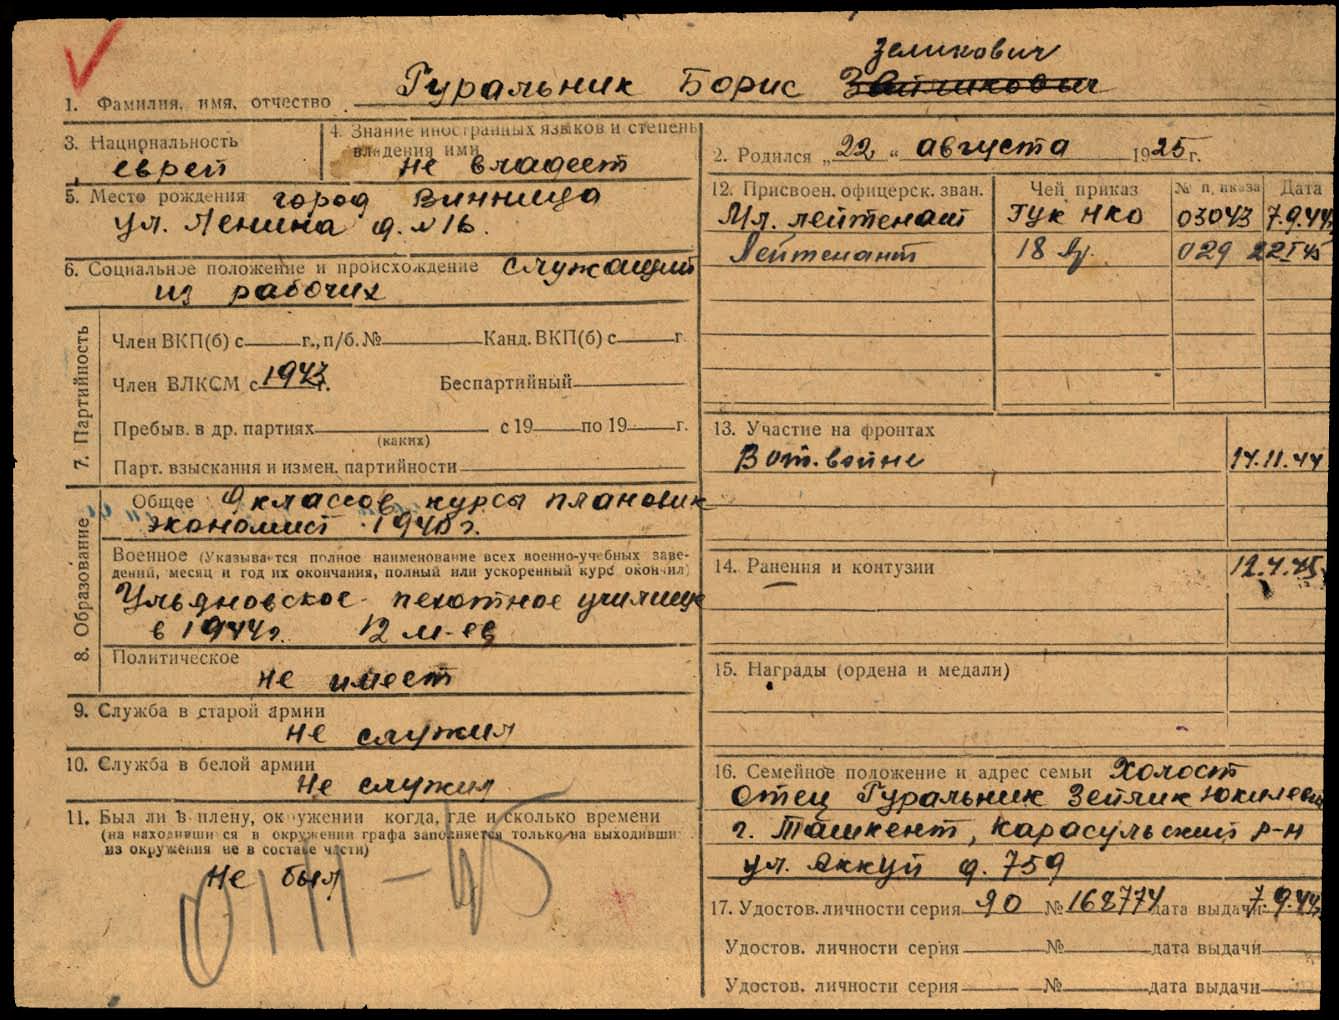 Зеликович
1. Фамилия, имя, отчество Гуральник Борис Зейликович
3. Национальность
еврей
4. Знание иностранных языков и степень
владения ими
не владеет
5. Место рождения город Винница
ул. Ленина д. №16.
6. Социальное положение и происхождение служащий
из рабочих
7. Партийность
Член ВКП(б) с г., п/б. № Канд. ВКП(б) с г.
Член ВЛКСМ с 1943 г. Беспартийный
Пребыв. в др. партиях с 19 по 19 г.
(каких)
Парт. взыскания и измен. партийности
8. Образование
Общее 9 классов, курсы плановик
экономист 1940 г.
Военное (Указывается полное наименование всех военно-учебных заве-
дений, месяц и год их окончания, полный или ускоренный курс окончил)
Ульяновское пехотное училище
в 1944 г. 12 м-ев
Политическое
не имеет
9. Служба в старой армии
не служил
10. Служба в белой армии
Не служил
11. Был ли в плену, окружении когда, где и сколько времени
(на находившихся в окружении графа заполняется только на выходивших
из окружения не в составе части)
Не был
2. Родился „22" августа 1925 г.
12. Присвоен. офицерск. зван. Чей приказ № приказа Дата
Мл. лейтенант ГУК НКО 03043 7.9.44
Лейтенант 18 029
13. Участие на фронтах
В от. войне 14.11.44
14. Ранения и контузии
15. Награды (ордена и медали)
16. Семейное положение и адрес семьи Холост
отец Гуральник Зейлик
г. Ташкент, Карасульский р-н
ул. Аккуй д. 759
17. Удостов. личности серия ЯО № 168774 дата выдачи 7.9.44
Удостов. личности серия № дата выдачи
Удостов. личности серия № дата выдачи